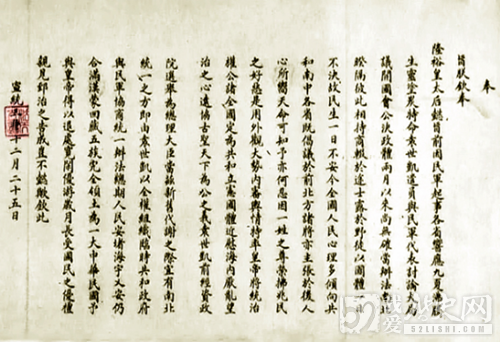 奉
旨朕欽奉
隆裕皇太后懿旨前因民軍起事各省響應九夏沸騰
生靈塗炭特命袁世凱遣員與民軍代表討論大局
議開國會公決政體兩月以來尚無確當辦法南北
暌隔彼此相持商輟於途士露於野徒以國體一日
不決故民生一日不安今全國人民心理多傾向共
和南中各省既倡議於前北方諸將亦主張於後人
心所嚮天命可知予亦何忍因一姓之尊榮拂兆民
之好惡是用外觀大勢內審輿情特率皇帝將統治
權公諸全國定為共和立憲國體近慰海內厭亂望
治之心遠協古聖天下為公之義袁世凱前經資政
院選舉為總理大臣當茲新舊代謝之際宜有南北
統一之方即由袁世凱以全權組織臨時共和政府
與民軍協商統一辦法總期人民安堵海宇乂安仍
合滿漢蒙回藏五族完全領土為一大中華民國予
與皇帝得以退處寬閒優游歲月長受國民之優禮
親見郅治之告成豈不懿歟欽此
宣統三年十二月二十五日
我爱历史网
52LISHI.COM